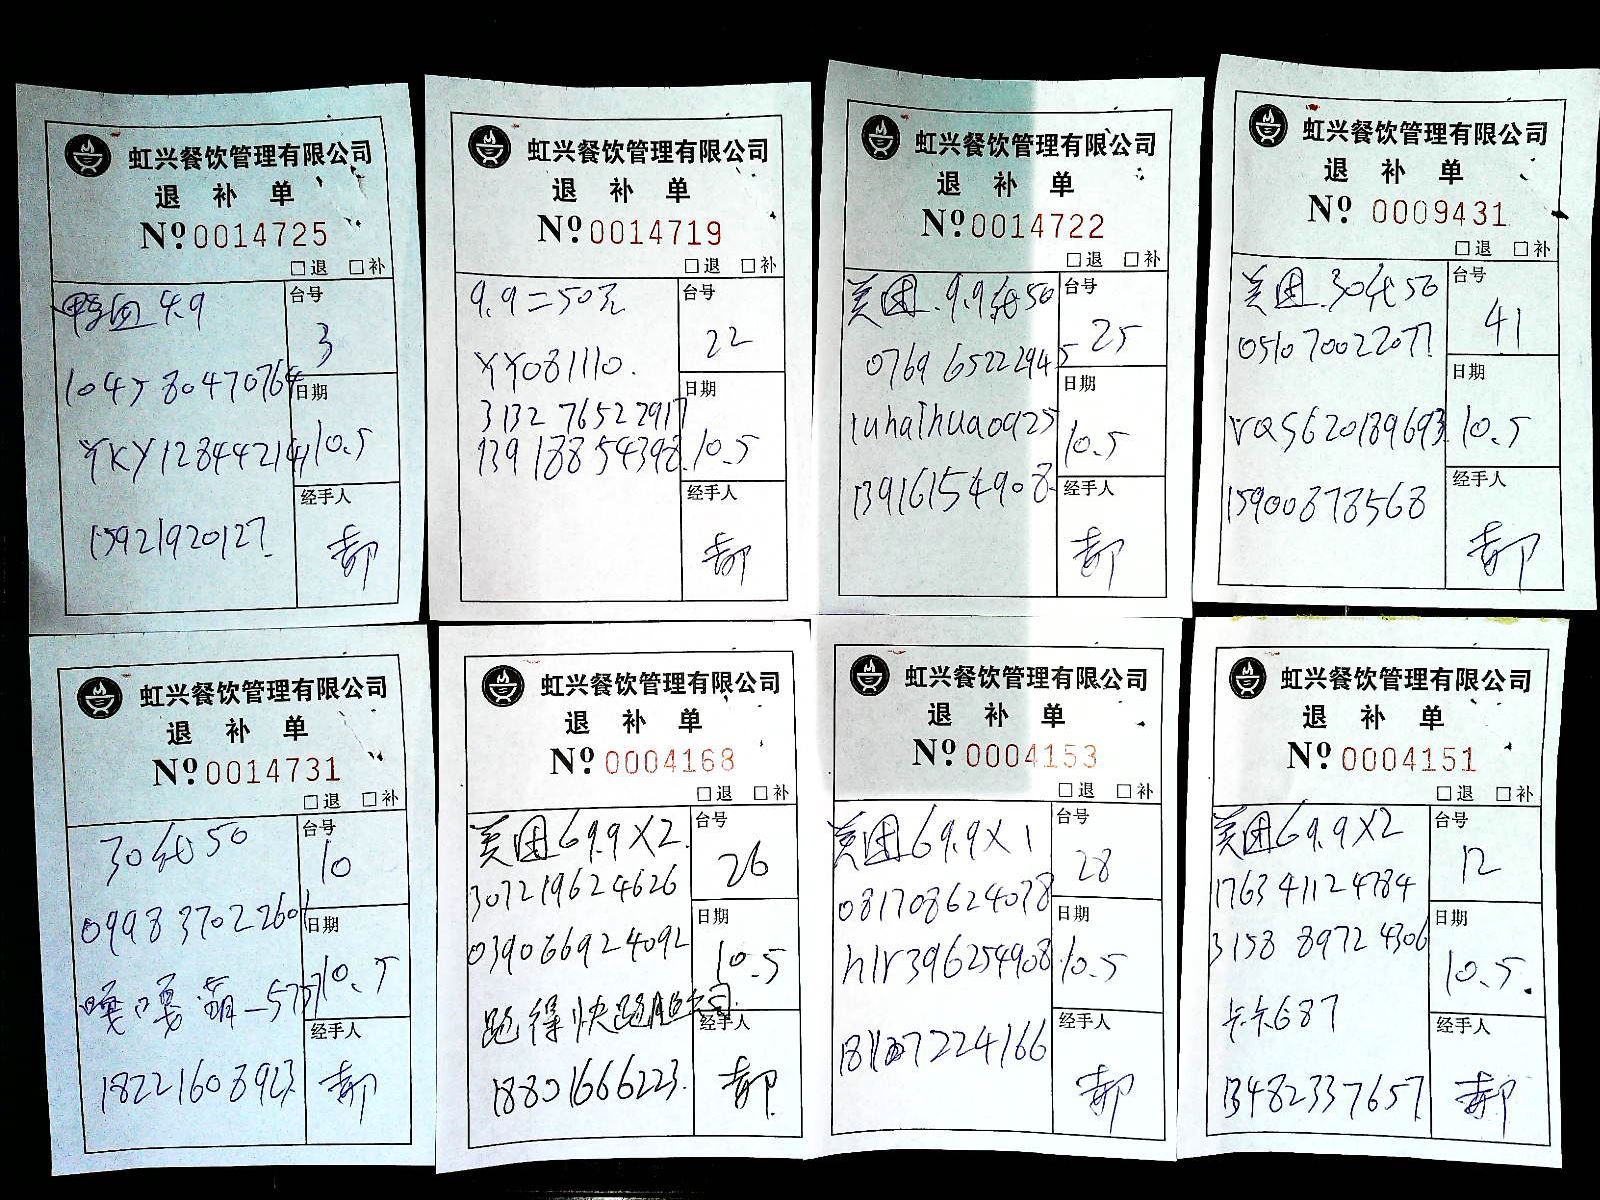 虹兴餐饮管理有限公司
退 补 单
Nº 0014725
□退 □补
鸭血 4.9
台号
3
104580470764
日期
10.5
YKY128442141
经手人
15921920127
郝
虹兴餐饮管理有限公司
退 补 单
Nº 0014719
□退 □补
9.9=50元
台号
22
YY081110.
日期
10.5
3132 76522917
13918854398
经手人
郝
虹兴餐饮管理有限公司
退 补 单
Nº 0014722
□退 □补
美团.9.9代50
台号
25
0769 65222945
日期
10.5
经手人
13916154908
郝
虹兴餐饮管理有限公司
退 补 单
Nº 0009431
□退 □补
美团.30代50
台号
41
051070022077
日期
10.5
vqs620189693
经手人
15900878568
郝
虹兴餐饮管理有限公司
退 补 单
Nº 0014731
□退 □补
30代50
台号
10
0998 37022601
日期
10.5
嘎嘎萌-577
经手人
18221608923
郝
虹兴餐饮管理有限公司
退 补 单
Nº 0004168
□退 □补
美团69.9X2
台号
26
307219624626
039066924092
日期
10.5
跑得快跑腿公司
经手人
18801666223.
郝
虹兴餐饮管理有限公司
退 补 单
Nº 0004153
□退 □补
美团69.9X1
台号
28
081708624078
日期
10.5
hlr396254908
经手人
郝
虹兴餐饮管理有限公司
退 补 单
Nº 0004151
□退 □补
美团69.9X2
台号
12
1763 41124784
3158 89724306
日期
10.5.
卡卡687
经手人
13482337657
郝